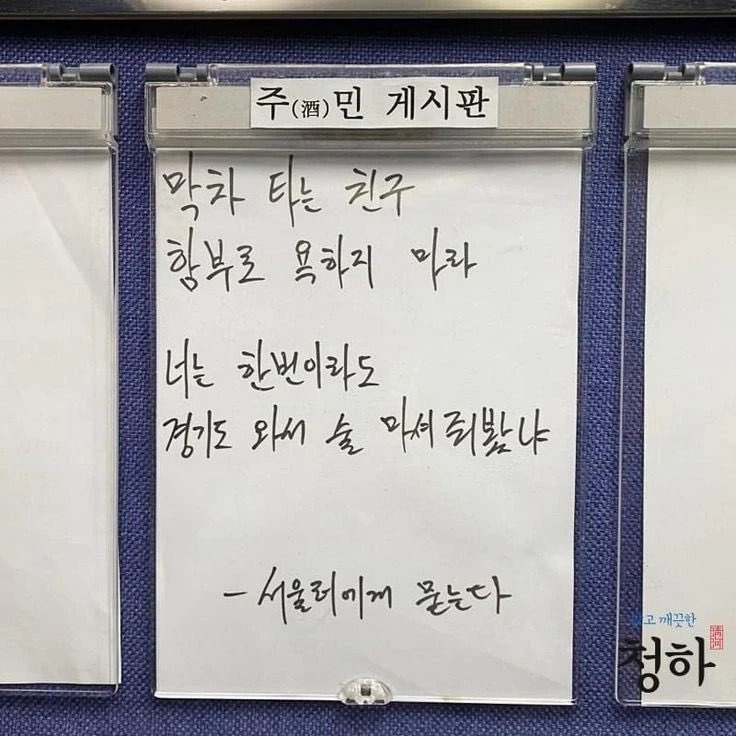 주(酒)민 게시판
막차 타는 친구
함부로 욕하지 마라
너는 한번이라도
경기도 와서 술 마셔줘봤냐
- 서울러에게 묻는다
맑고 깨끗한
청하
淸河